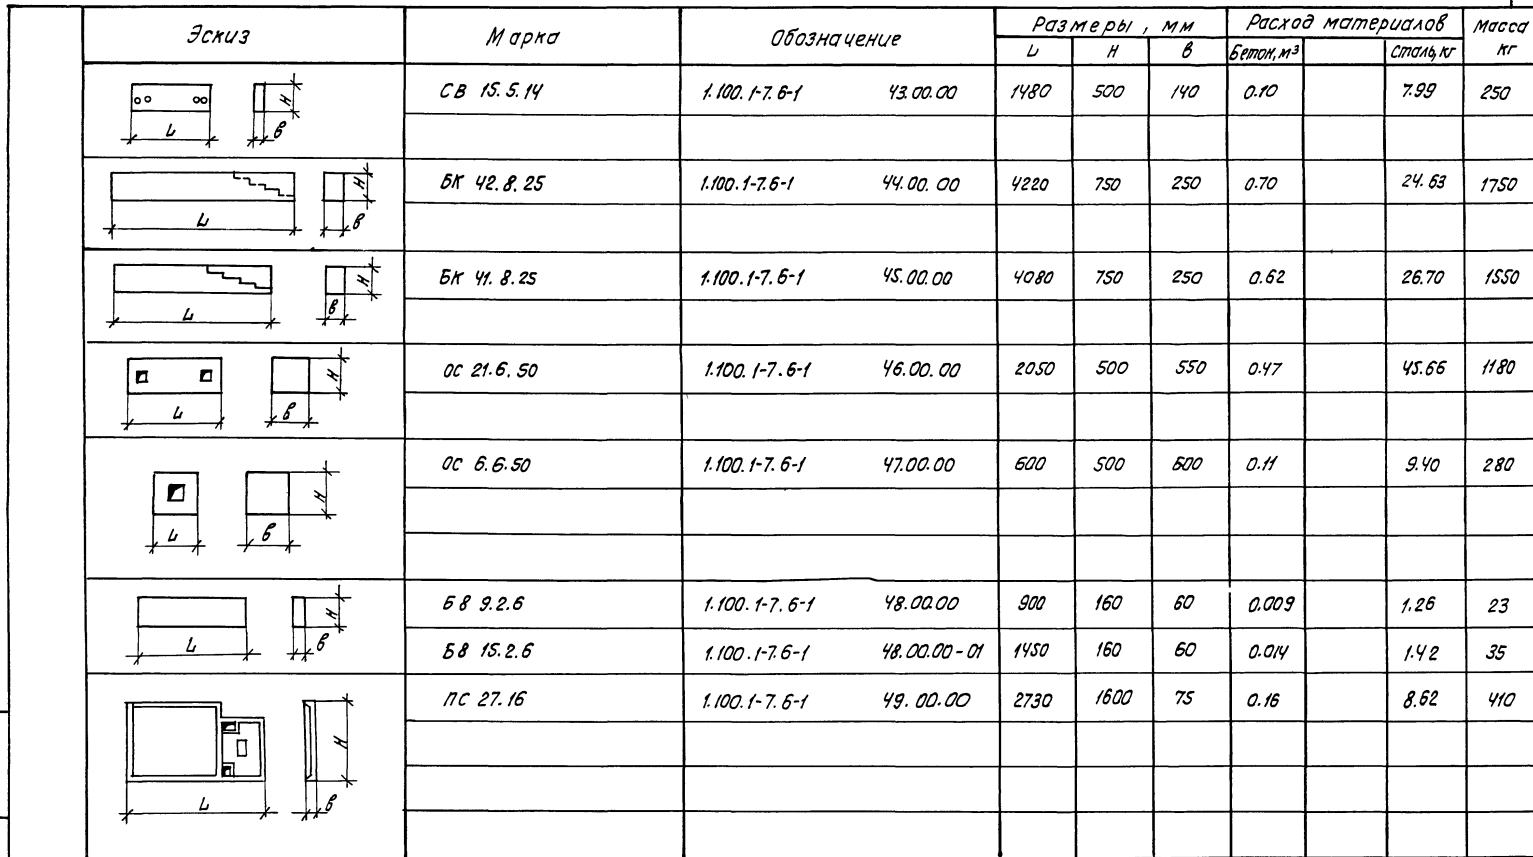 Эскиз Марка Обозначение Размеры, мм Расход материалов Масса кг
L H в Бетон, м³ Сталь, кг
L в H СВ 15.5.14 1.100.1-7.6-1 43.00.00 1480 500 140 0.10 7.99 250
L в H БК 42.8.25 1.100.1-7.6-1 44.00.00 4220 750 250 0.70 24.63 1750
L в H БК 41.8.25 1.100.1-7.6-1 45.00.00 4080 750 250 0.62 26.70 1550
L в H ОС 21.6.50 1.100.1-7.6-1 46.00.00 2050 500 550 0.47 45.66 1180
L в H ОС 6.6.50 1.100.1-7.6-1 47.00.00 600 500 600 0.11 9.40 280
L в H БВ 9.2.6 1.100.1-7.6-1 48.00.00 900 160 60 0.009 1.26 23
БВ 15.2.6 1.100.1-7.6-1 48.00.00-01 1450 160 60 0.014 1.42 35
L в H ПС 27.16 1.100.1-7.6-1 49.00.00 2730 1600 75 0.16 8.62 410